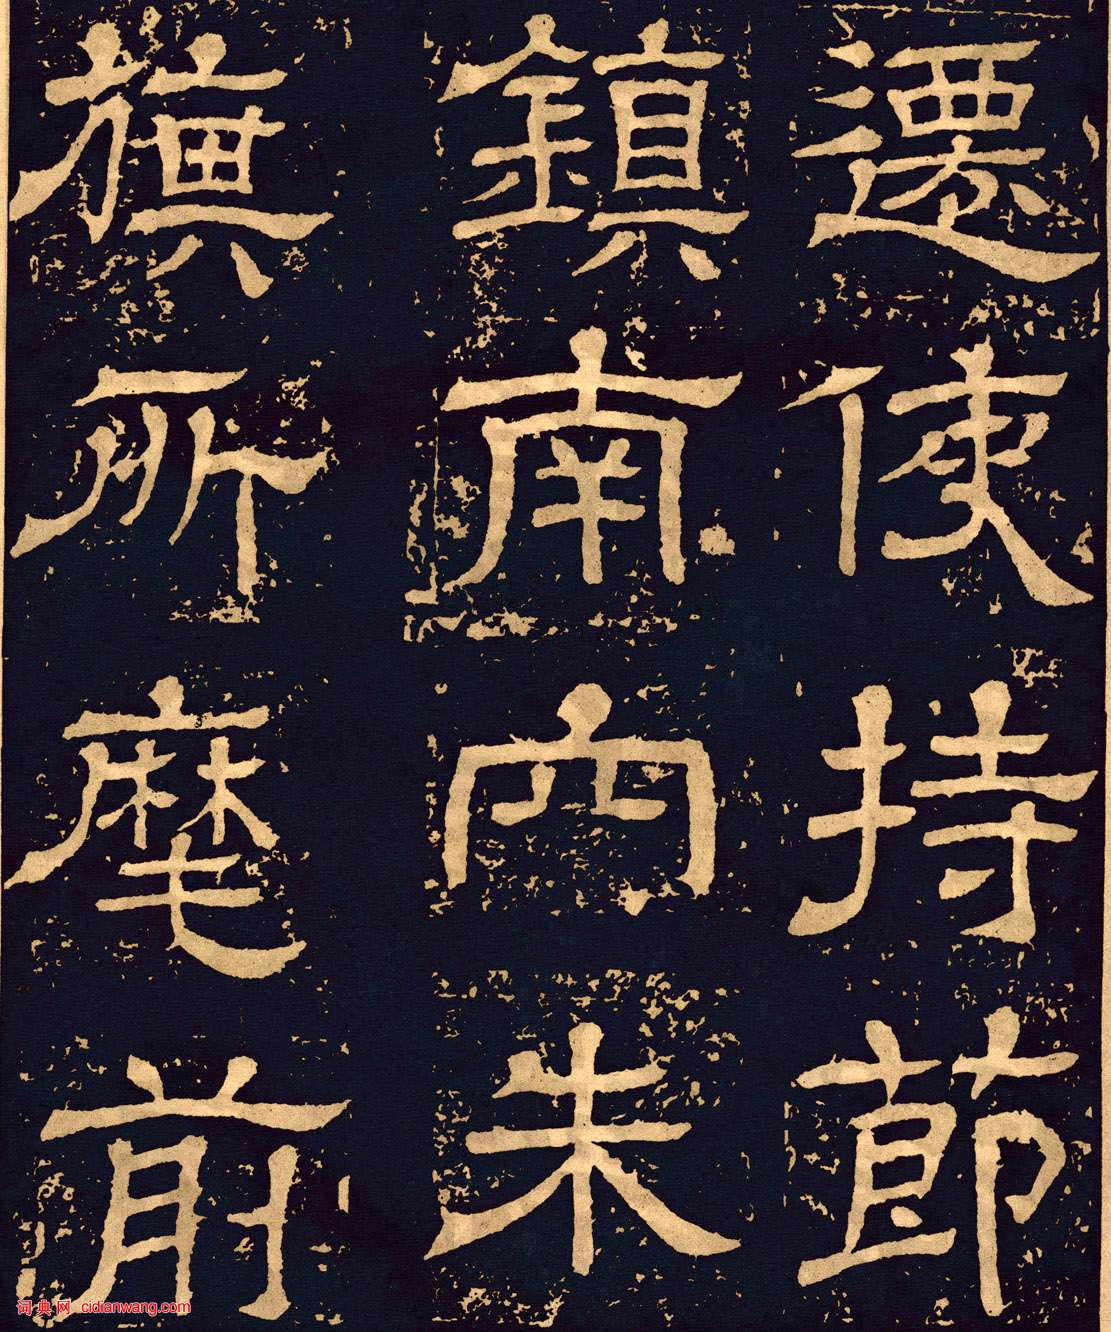 遷使持節
鎮南內朱
旗所麾前
词典网 cidianwang.com